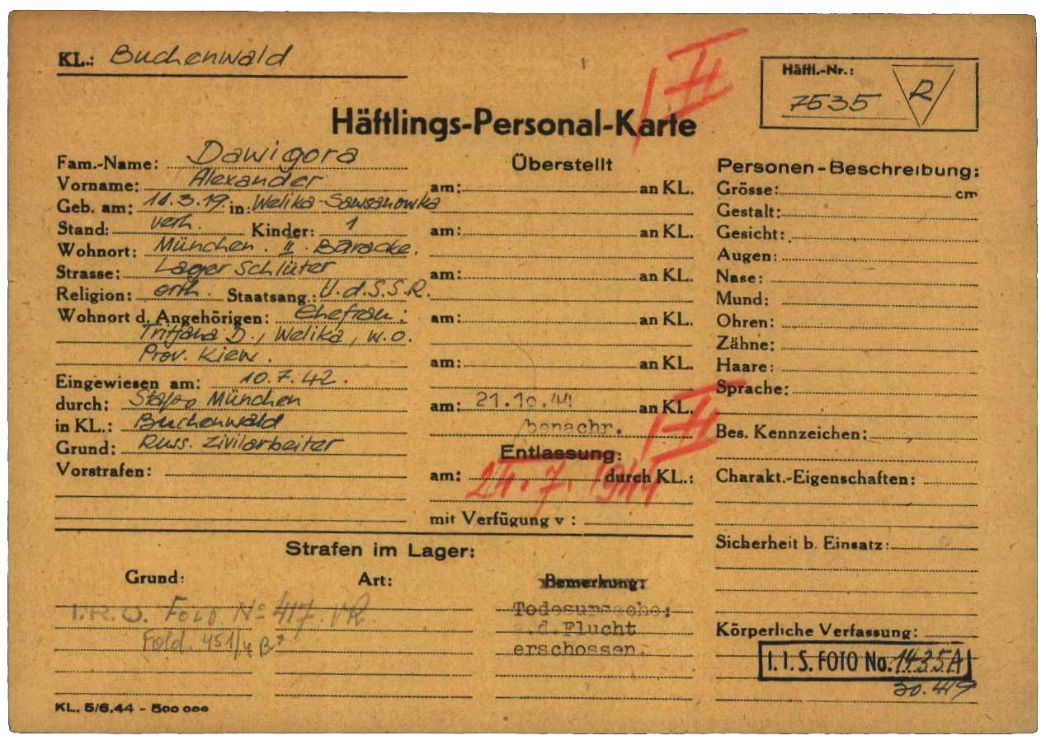 KL.: Buchenwald
Häftl.-Nr.:
7535 R
Häftlings-Personal-Karte
Fam.-Name: Dawigora
Vorname: Alexander
Geb. am: 11.3.19 in: Welika-Sawsanowka
Stand: verh. Kinder: 1
Wohnort: München. II. Baracke.
Strasse: Lager Schlüter
Religion: orth. Staatsang.: U.d.S.S.R.
Wohnort d. Angehörigen: Ehefrau:
D., Welika, w.o.
Prov. Kiew.
Eingewiesen am: 10.7.42.
durch: Stapo München
in KL.: Buchenwald
Grund: Russ. Zivilarbeiter
Vorstrafen:
Überstellt
am: an KL.
am: an KL.
am: an KL.
am: an KL.
am: an KL.
am: 21.10.44 an KL.
benachr.
Entlassung:
am: durch KL.:
24.7.1944
mit Verfügung v :
Personen-Beschreibung:
Grösse: cm
Gestalt:
Gesicht:
Augen:
Nase:
Mund:
Ohren:
Zähne:
Haare:
Sprache:
Bes. Kennzeichen:
Charakt.-Eigenschaften:
Sicherheit b. Einsatz:
Körperliche Verfassung:
I.I.S. FOTO No. 1435A
30.4.
Strafen im Lager:
Grund: Art: Bemerkung:
I.R.O. Fold Nº 417. VR
Fold. 451/4 B
Todesursache:
a.d.Flucht
erschossen.
KL. 5/6.44 - 500 000